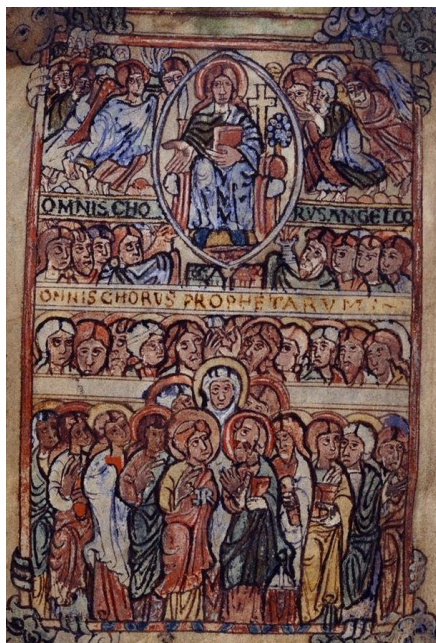 OMNIS CHO RVS ANGELOR
OMNIS CHORVS PROPHETARVM :~